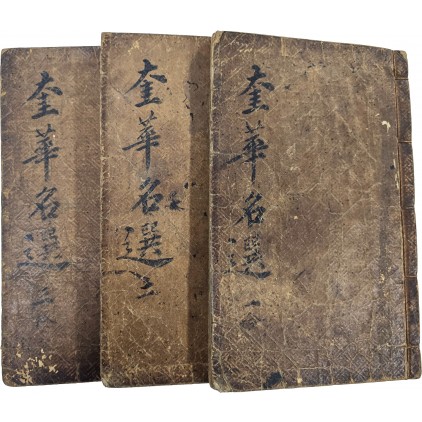 奎華名選 一
奎華名選 三
奎華名選 二